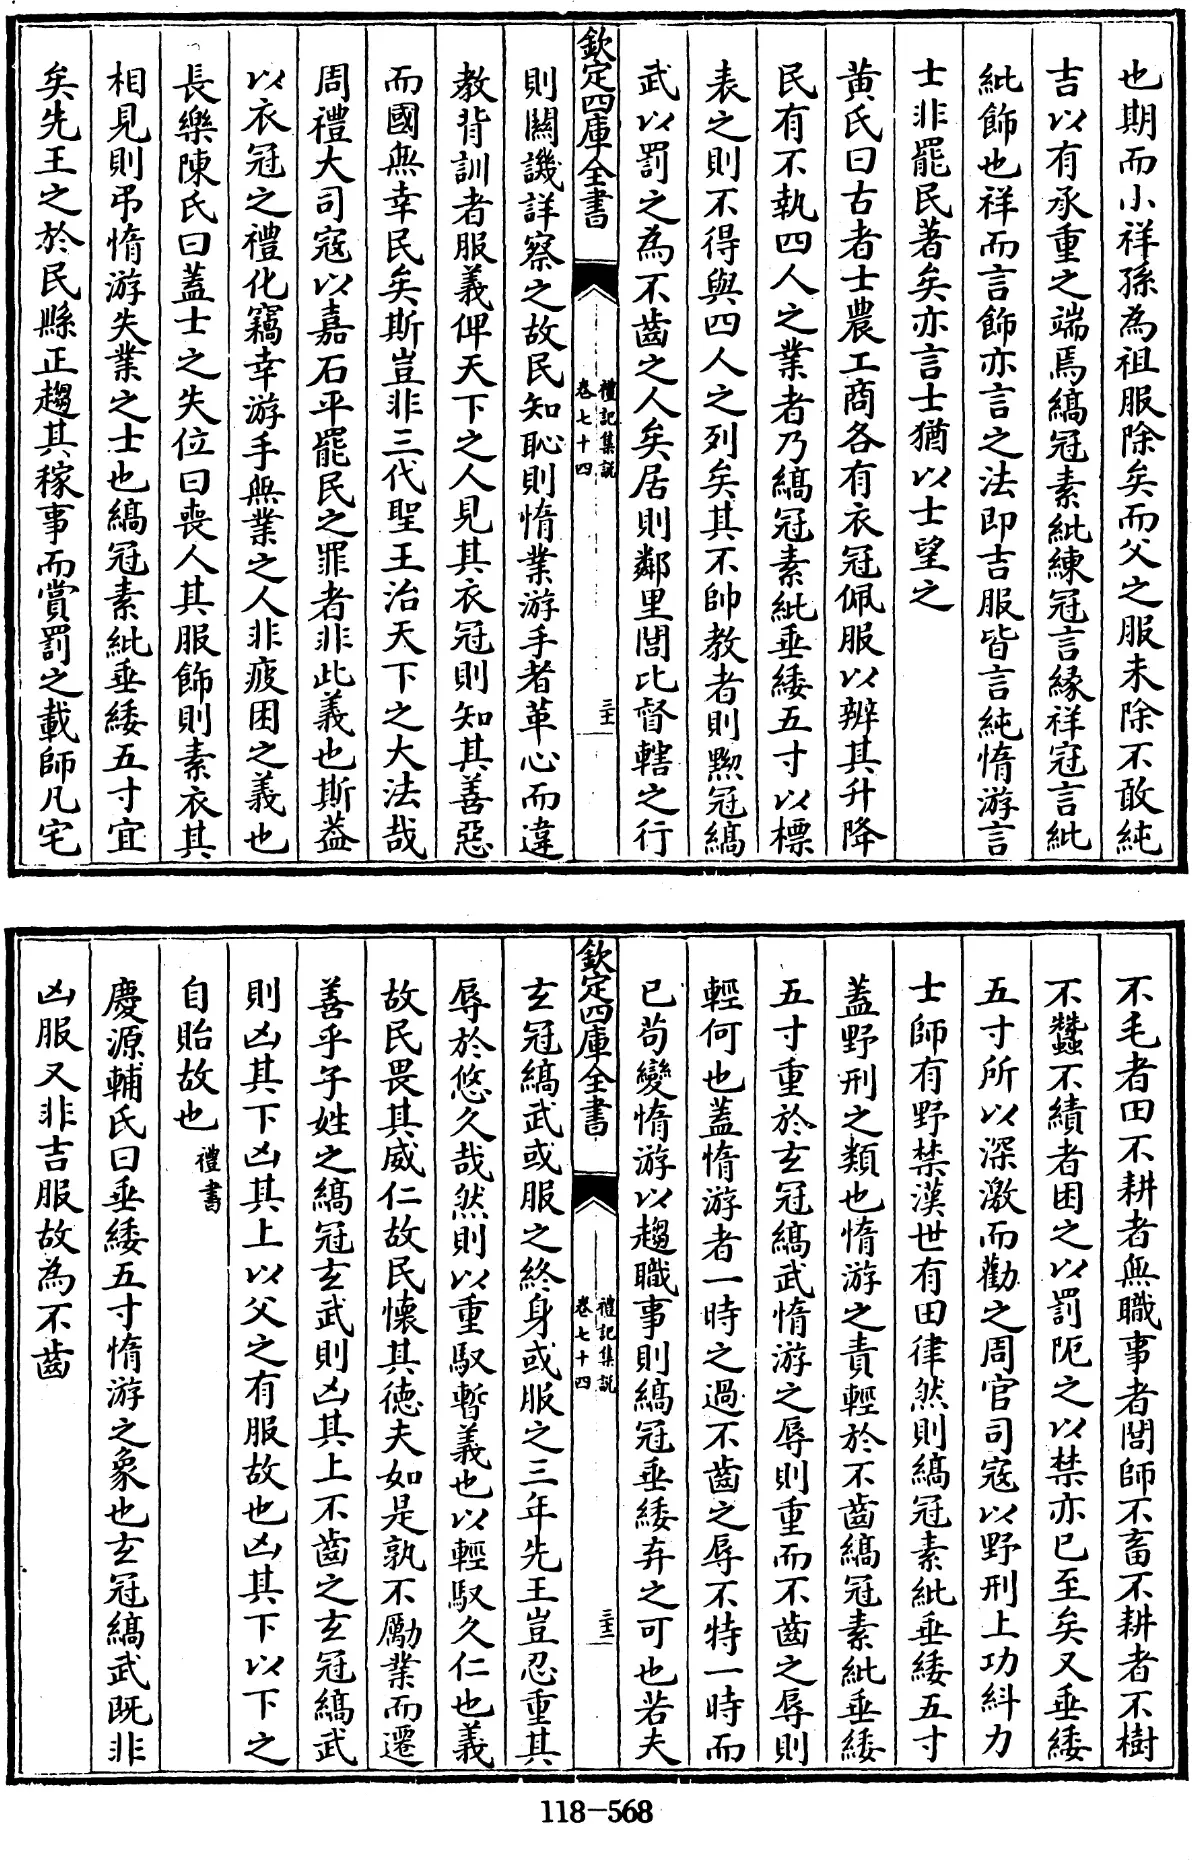 也期而小祥孫為祖服除矣而父之服未除不敢純
吉以有承重之端焉縞冠素紕練冠言緣祥冠言紕
紕飾也祥而言飾亦言之法即吉服皆言純惰游言
士非罷民著矣亦言士猶以士望之
黃氏曰古者士農工商各有衣冠佩服以辨其升降
民有不執四人之業者乃縞冠素紕垂緌五寸以標
表之則不得與四人之列矣其不帥教者則黜冠縞
武以罰之為不齒之人矣居則鄰里閭比督轄之行
欽定四庫全書
禮記集說
卷七十四
三十一
則關譏詳察之故民知恥則惰業游手者革心而違
教背訓者服義俾天下之人見其衣冠則知其善惡
而國無幸民矣斯豈非三代聖王治天下之大法哉
周禮大司寇以嘉石平罷民之罪者非此義也斯葢
以衣冠之禮化竊幸游手無業之人非疲困之義也
長樂陳氏曰蓋士之失位曰喪人其服飾則素衣其
相見則弔惰游失業之士也縞冠素紕垂緌五寸宜
矣先王之於民縣正趨其稼事而賞罰之載師凡宅
不毛者田不耕者無職事者閭師不畜不耕者不樹
不蠶不績者困之以罰阨之以禁亦已至矣又垂緌
五寸所以深激而勸之周官司寇以野刑上功糾力
士師有野禁漢世有田律然則縞冠素紕垂緌五寸
蓋野刑之類也惰游之責輕於不齒縞冠素紕垂緌
五寸重於玄冠縞武惰游之辱則重而不齒之辱則
輕何也蓋惰游者一時之過不齒之辱不特一時而
已苟變惰游以趨職事則縞冠垂緌弃之可也若夫
欽定四庫全書
禮記集說
卷七十四
三十二
玄冠縞武或服之終身或服之三年先王豈忍重其
辱於悠久哉然則以重馭暫義也以輕馭久仁也義
故民畏其威仁故民懷其德夫如是孰不勵業而遷
善乎子姓之縞冠玄武則凶其上不齒之玄冠縞武
則凶其下凶其上以父之有服故也凶其下以下之
自貽故也 禮書
慶源輔氏曰垂緌五寸惰游之象也玄冠縞武既非
凶服又非吉服故為不齒
118-568